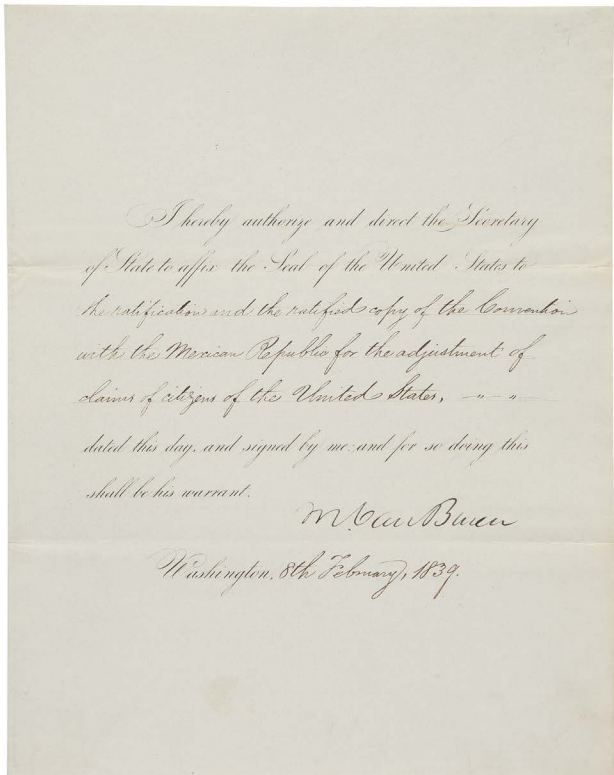 I hereby authorize and direct the Secretary
of State to affix the Seal of the United States to
the ratification and the ratified copy of the Convention
with the Mexican Republic for the adjustment of
claims of citizens of the United States, — " — "
dated this day, and signed by me: and for so doing this
shall be his warrant.
M Van Buren
Washington, 8th February, 1839.